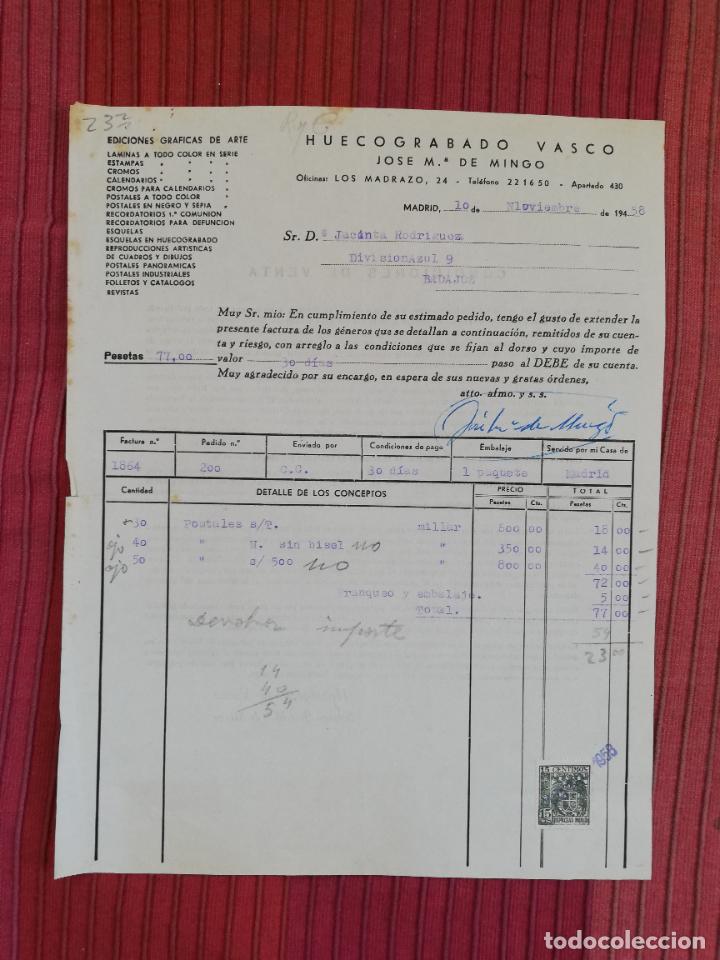 232
EDICIONES GRAFICAS DE ARTE
LAMINAS A TODO COLOR EN SERIE
ESTAMPAS " " " "
CROMOS " " " "
CALENDARIOS " " " "
CROMOS PARA CALENDARIOS "
POSTALES A TODO COLOR "
POSTALES EN NEGRO Y SEPIA "
RECORDATORIOS 1.ª COMUNION
RECORDATORIOS PARA DEFUNCION
ESQUELAS
ESQUELAS EN HUECOGRABADO
REPRODUCCIONES ARTISTICAS
DE CUADROS Y DIBUJOS
POSTALES PANORAMICAS
POSTALES INDUSTRIALES
FOLLETOS Y CATALOGOS
REVISTAS
HUECOGRABADO VASCO
JOSE M.ª DE MINGO
Oficinas: LOS MADRAZO, 24 - Teléfono 221650 - Apartado 430
MADRID, 10 de Nloviembre de 1943 58
Sr. D.ª Jacinta Rodriguez
DivisionAzul 9
BADAJOZ
Muy Sr. mio: En cumplimiento de su estimado pedido, tengo el gusto de extender la
presente factura de los géneros que se detallan a continuación, remitidos de su cuen-
ta y riesgo, con arreglo a las condiciones que se fijan al dorso y cuyo importe de
Pesetas 77,00 valor 30 dias paso al DEBE de su cuenta.
Muy agradecido por su encargo, en espera de sus nuevas y gratas órdenes,
atto. afmo. y s. s.
Factura n.º Pedido n.º Enviado por Condiciones de pago Embalaje Servido por mi Casa de
1864 200 C.C. 30 días 1 paquete Madrid
Cantidad DETALLE DE LOS CONCEPTOS PRECIO TOTAL
Pesetas Cts. Pesetas Cts.
30 Postales s/T. millar 600 00 18 00
ojo 40 " N. sin bisel NO " 350 00 14 00
ojo 50 " s/ 500 NO " 800 00 40 00
72 00
Franqueo y embalaje. 5 00
Total. 77 00
Devolver importe 54
23 00
14
40
54
1958
15 CENTIMOS 15
ESPECIAL MOVIL
todocoleccion